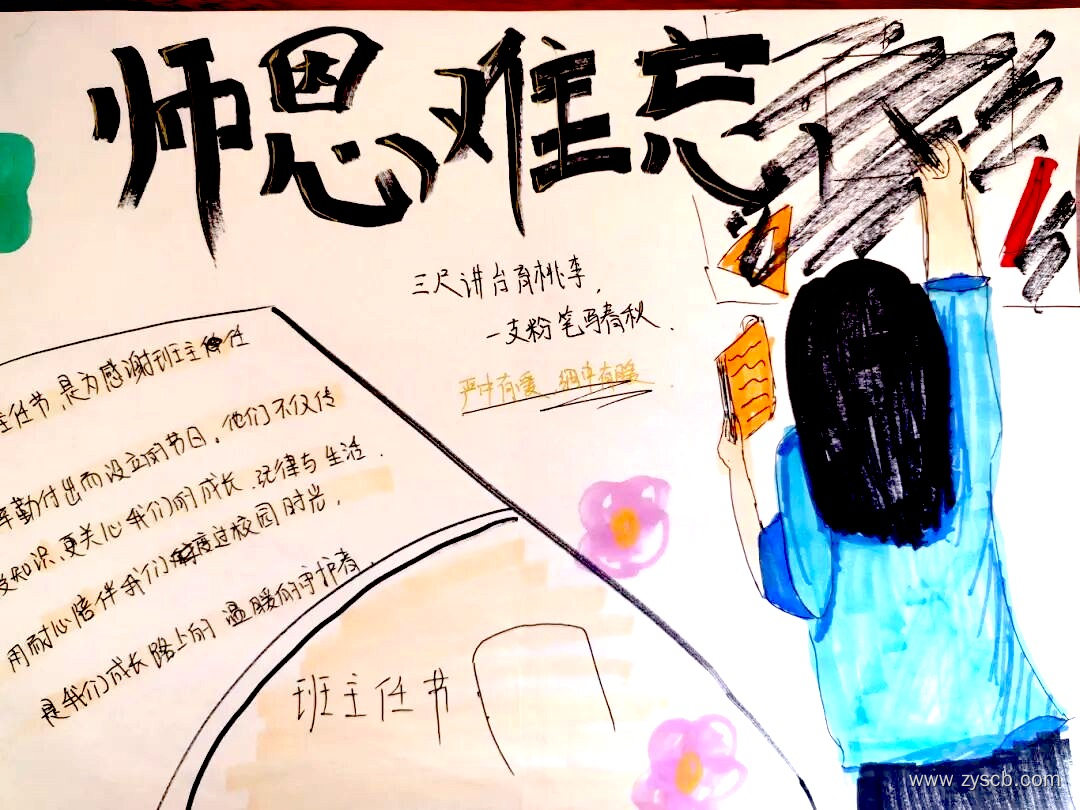 师恩难忘
三尺讲台育桃李,
一支粉笔写春秋.
严中有爱、细中有暖.
主任节,是为感谢班主任
辛勤付出而设立的节日,他们不仅传
授知识、更关心我们的成长、纪律与生活.
用耐心陪伴我们度过校园时光,
是我们成长路上的温暖的守护者.
班主任节
www.zyscb.com